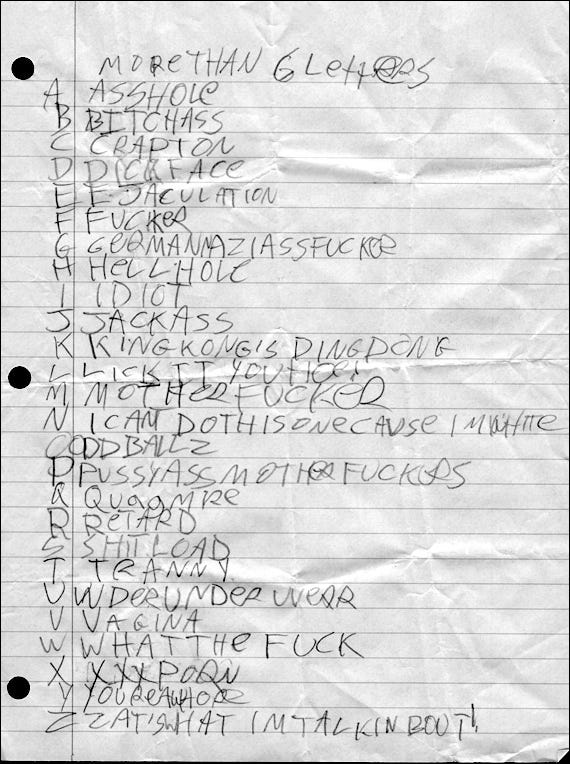 MORE THAN 6 LettERS
A ASSHOLE
B BITCHASS
C CRAPTON
D DICKFACE
E EJACULATION
F FUCKER
G GERMANNAZIASSFUCKER
H HELLHOLE
I IDIOT
J JACKASS
K KINGKONG'S DINGDONG
L LICK IT YOU HOE!
M MOTHERFUCKER
N I CAN DOTHISONECAUSE IMWHITE
O ODDBALLZ
P PUSSYASSMOTHERFUCKERS
Q QUAGMIRE
R RETARD
S SHITLOAD
T TRANNY
U WDERUNDERWEAR
V VAGINA
W WHATTHE FUCK
X XXXPORN
Y YOUREAWHORE
Z ZAT'SWHAT IMTALKINBOUT!